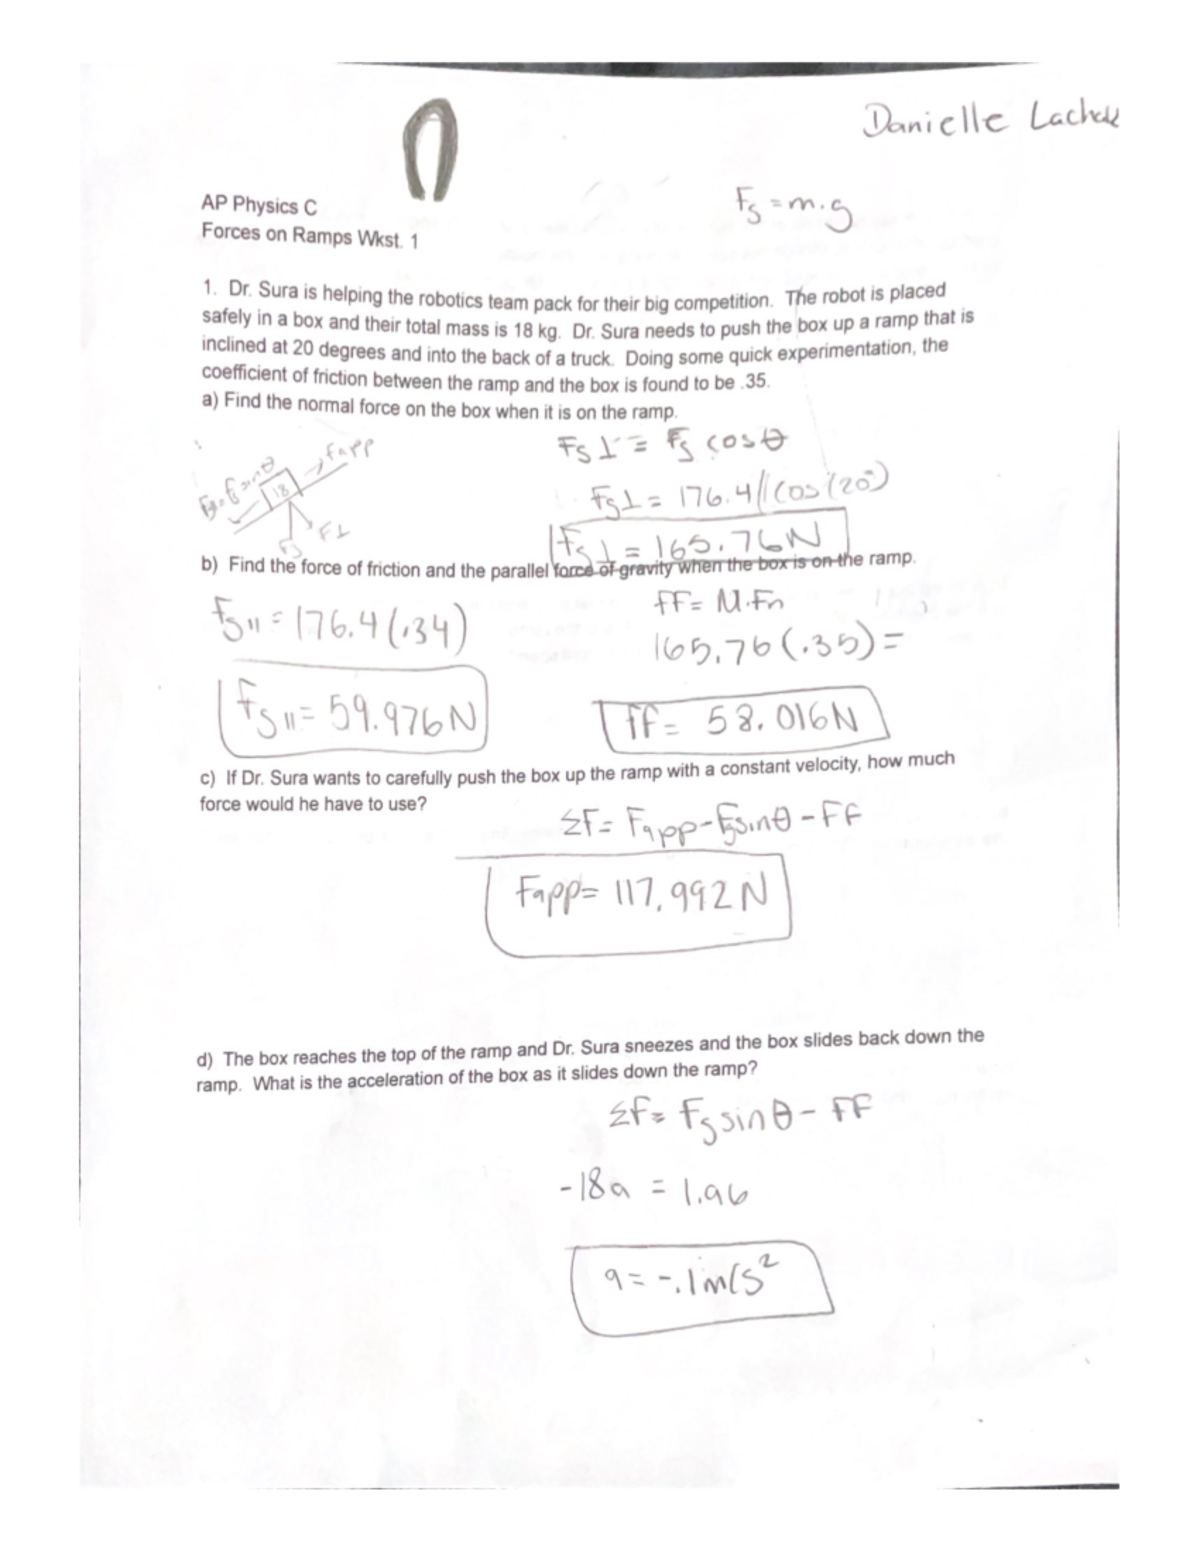 Danielle
AP Physics C
Forces on Ramps Wkst. 1
Fg = m.g
1. Dr. Sura is helping the robotics team pack for their big competition. The robot is placed
safely in a box and their total mass is 18 kg. Dr. Sura needs to push the box up a ramp that is
inclined at 20 degrees and into the back of a truck. Doing some quick experimentation, the
coefficient of friction between the ramp and the box is found to be .35.
a) Find the normal force on the box when it is on the ramp.
Fg⊥ = Fg cosθ
Fapp
18
Fg⊥ = 176.4 cos(20°)
F⊥
Fg
Fg⊥ = 165.76N
b) Find the force of friction and the parallel force of gravity when the box is on the ramp.
Fg11 = 176.4(.34)
FF = M.Fn
165.76(.35) =
Fg11 = 59.976N
FF = 58.016N
c) If Dr. Sura wants to carefully push the box up the ramp with a constant velocity, how much
force would he have to use?
ΣF = Fapp - Fgsinθ - FF
Fapp = 117.992N
d) The box reaches the top of the ramp and Dr. Sura sneezes and the box slides back down the
ramp. What is the acceleration of the box as it slides down the ramp?
ΣF = Fgsinθ - FF
-18a = 1.96
a = -.1m/s²